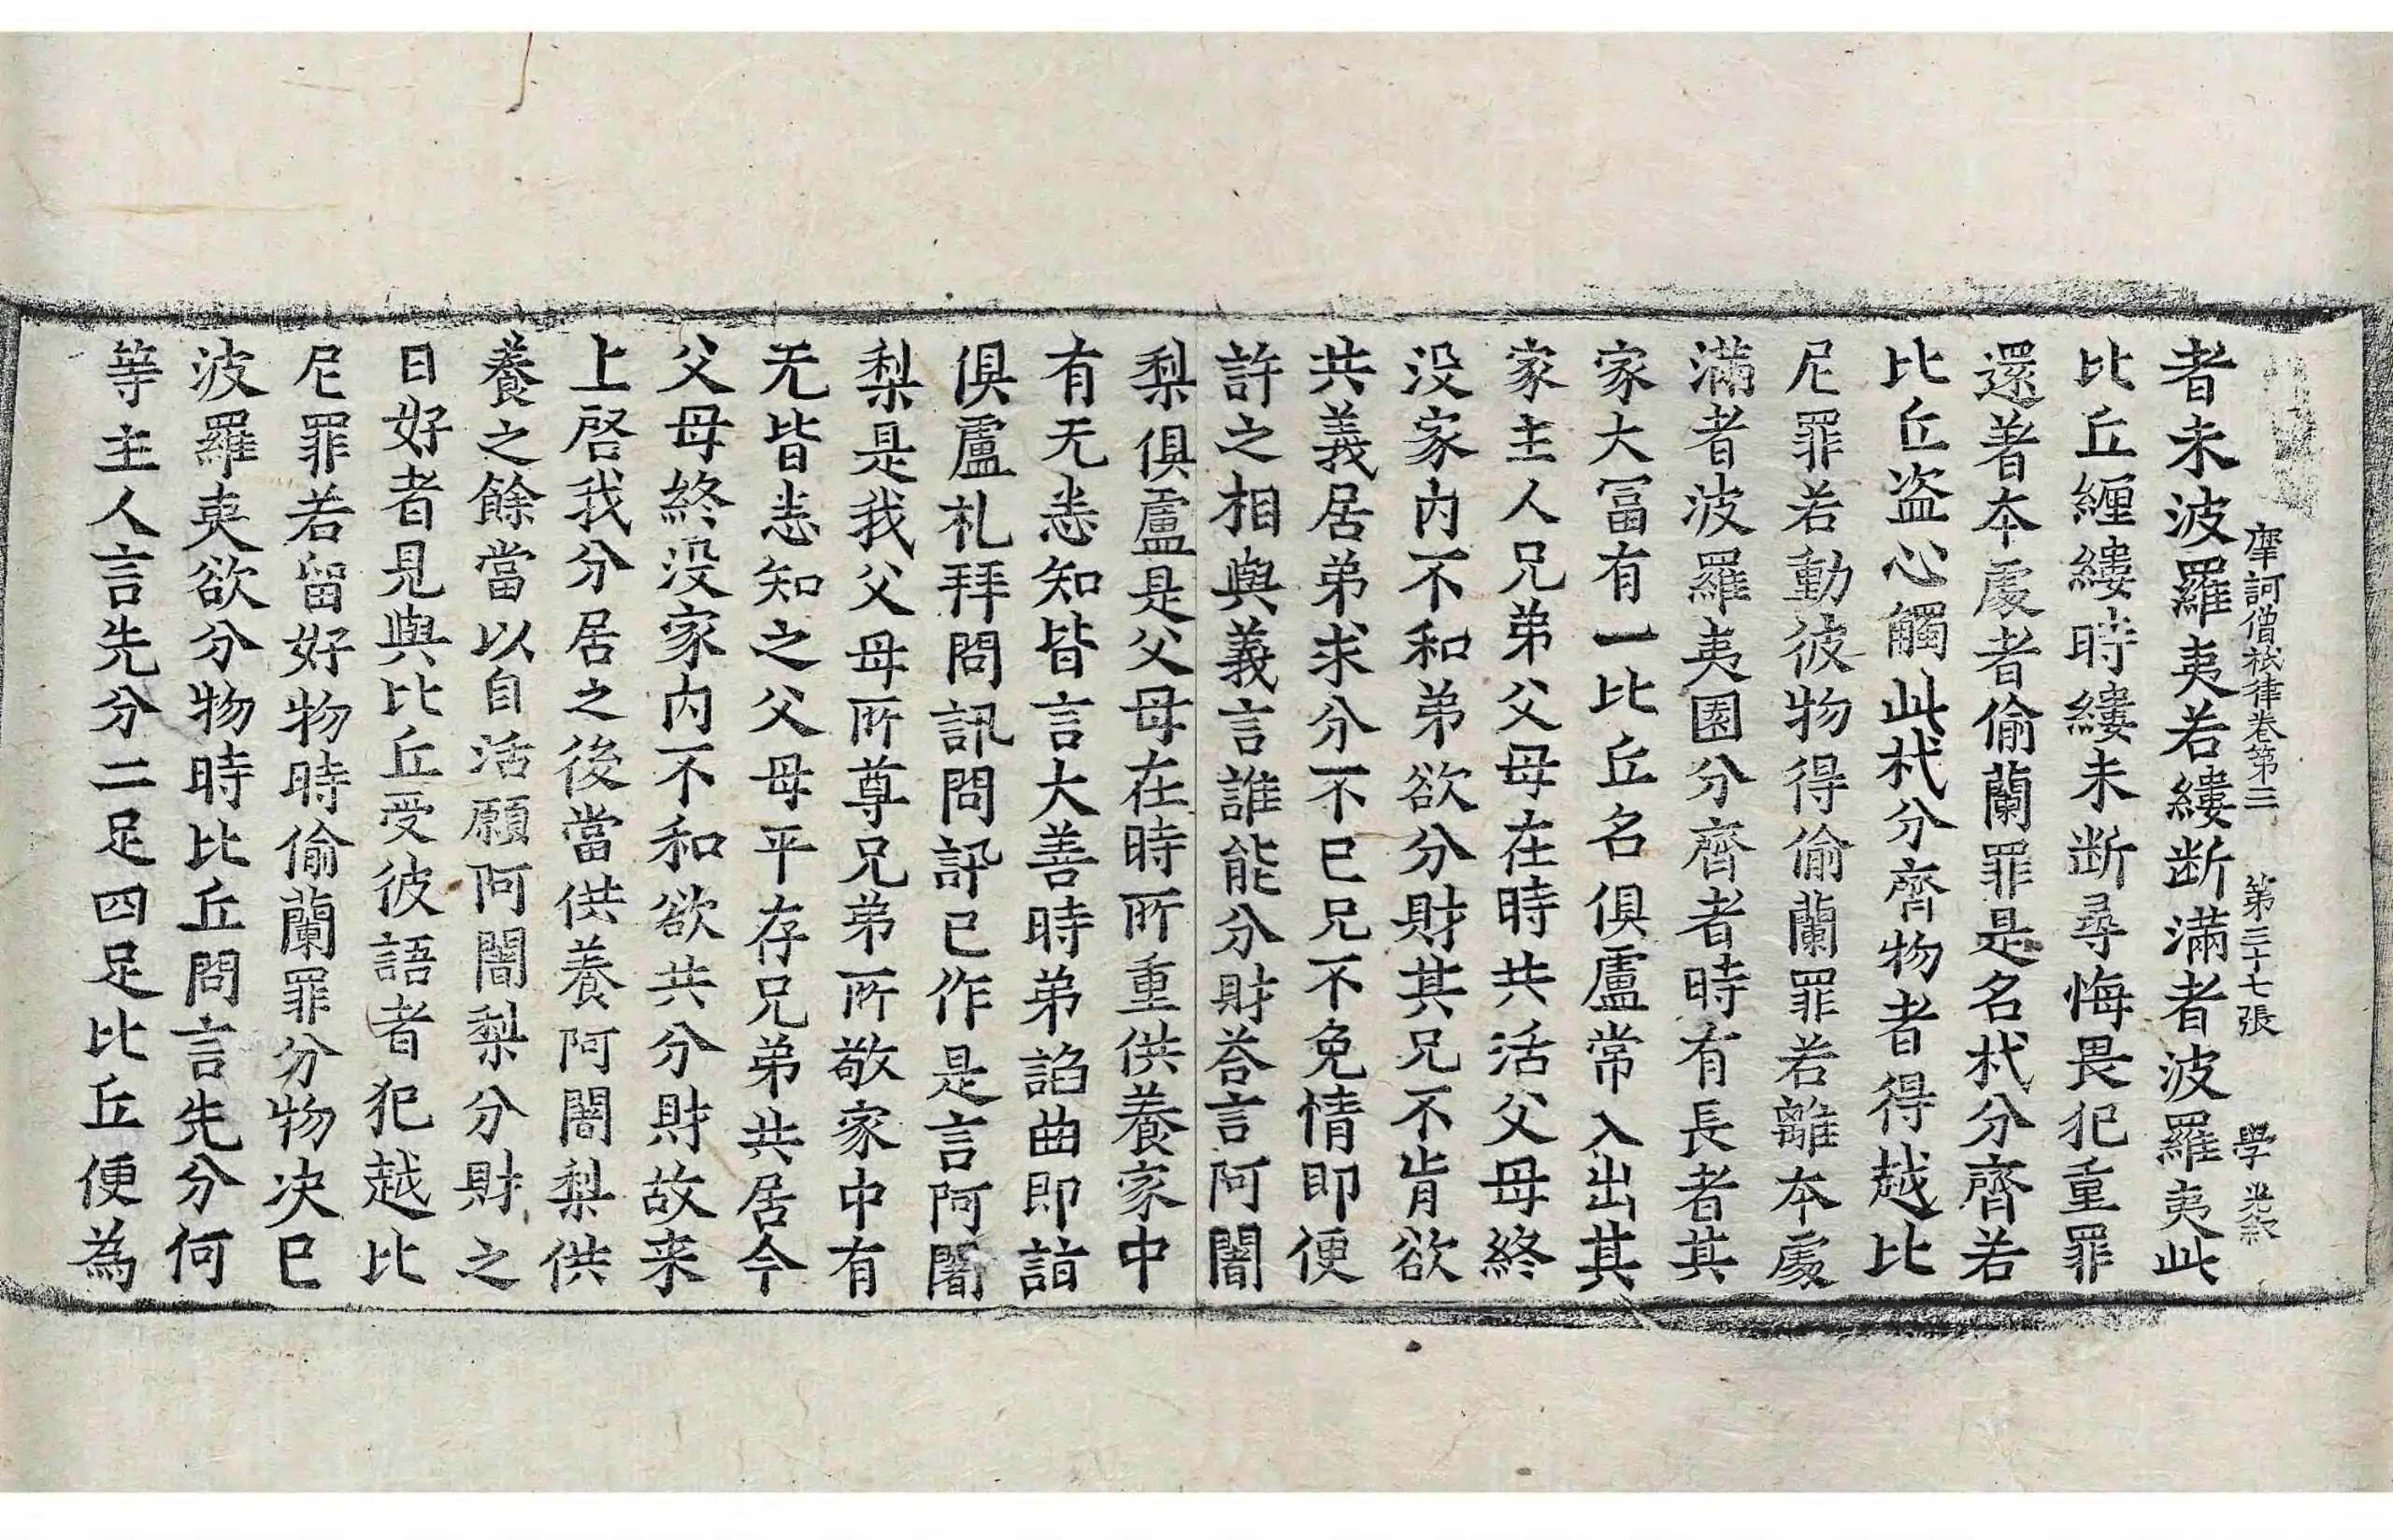 摩訶僧祇律卷第三 第三十七張 學
者未波羅夷若縷断滿者波羅夷此
比丘纏縷時縷未断尋悔畏犯重罪
還著本處者偷蘭罪是名杙分齊若
比丘盗心觸此杙分齊物者得越比
尼罪若動彼物得偷蘭罪若離本處
滿者波羅夷園分齊者時有長者其
家大冨有一比丘名俱盧常入出其
家主人兄弟父母在時共活父母終
没家内不和弟欲分財其兄不肯欲
共義居弟求分不已兄不免情即便
許之相與義言誰能分財荅言阿闍
梨俱盧是父母在時所重供養家中
有无悉知皆言大善時弟諂曲即詣
俱盧礼拜問訊問訊已作是言阿闍
梨是我父母所尊兄弟所敬家中有
无皆悉知之父母平存兄弟共居今
父母終没家内不和欲共分財故来
上啓我分居之後當供養阿闍梨供
養之餘當以自活願阿闍梨分財之
日好者見與比丘受彼語者犯越比
尼罪若留好物時偷蘭罪分物决已
波羅夷欲分物時比丘問言先分何
等主人言先分二足四足比丘便為